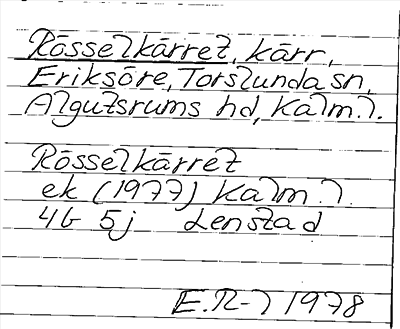 Rösselkärret, kärr,
Eriksöre, Torslunda sn,
Algutsrums hd, Kalm. l.
Rösselkärret
ek (1977) Kalm. l.
4G 5j Lenstad
E.R-l 1978